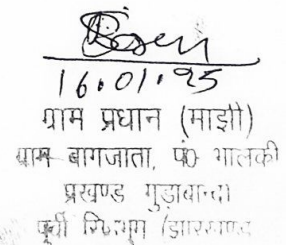 16.01.25
ग्राम प्रधान (माझी)
ग्राम बागजाता, पं0 भालकी
प्रखण्ड गुड़ाबान्दा
पूर्वी सिंहभूम (झारखण्ड